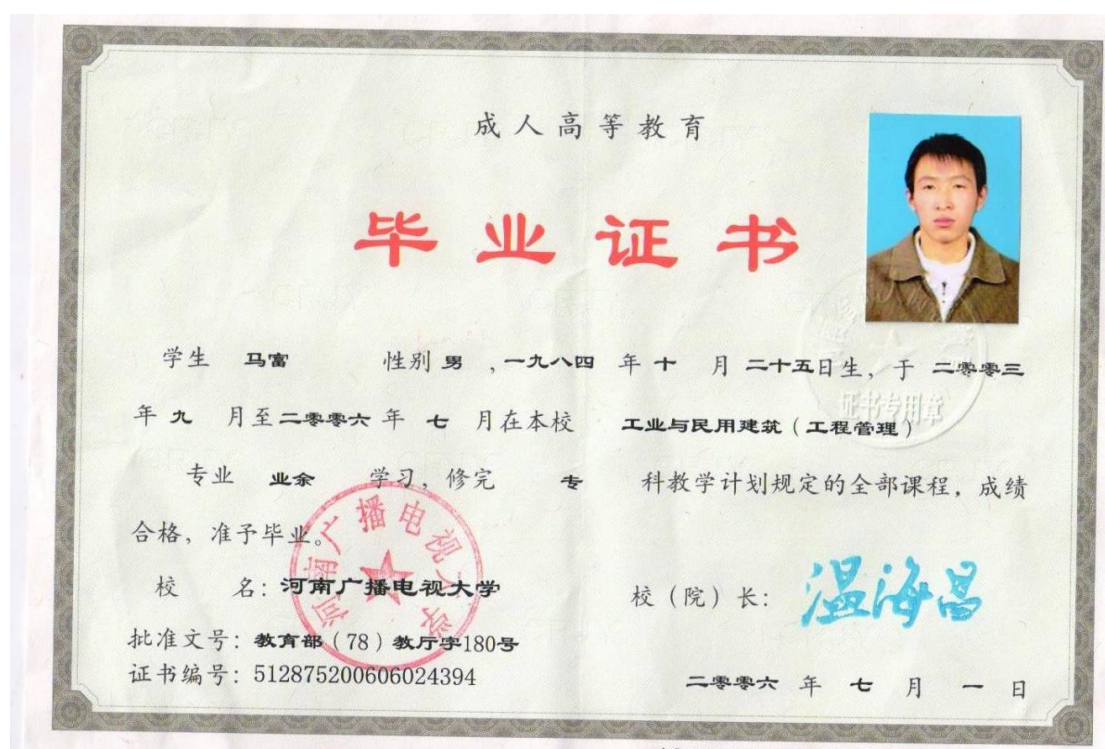 成人高等教育
毕业证书
学生 马富 性别 男 ，一九八四 年 十 月 二十五日生，于 二零零三
年 九 月至 二零零六 年 七 月在本校 工业与民用建筑（工程管理）
专业 业余 学习，修完 专 科教学计划规定的全部课程，成绩
合格，准予毕业。
河南广播电视大学
证书专用章
校 名：河南广播电视大学
校（院）长：温海昌
批准文号：教育部（78）教厅字180号
证书编号：512875200606024394
二零零六 年 七 月 一 日